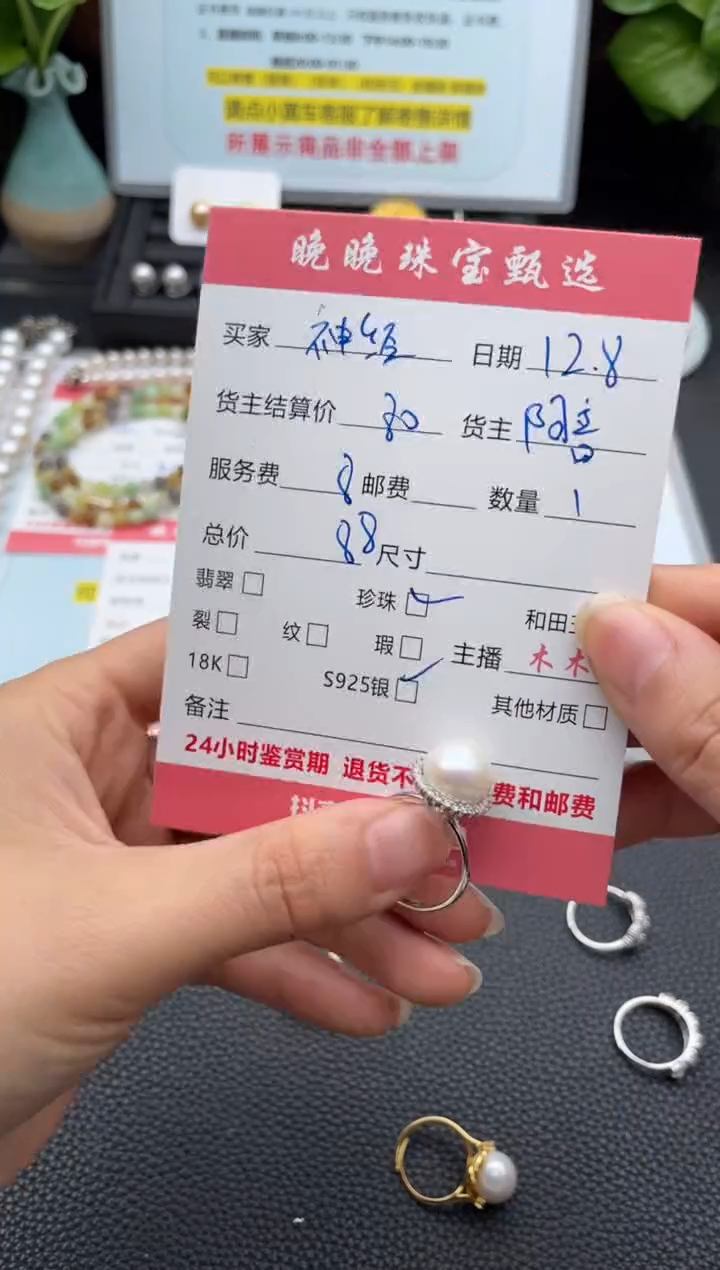 请点小黄车客服了解寄售详情
所展示商品非全部上架
晚晚珠宝甄选
买家 神经 日期 12.8
货主结算价 80 货主
服务费 8 邮费 数量 1
总价 88 尺寸
翡翠 珍珠 和田
裂 纹 瑕 主播 木木
18K S925银 其他材质
备注
24小时鉴赏期 退货不 费和邮费